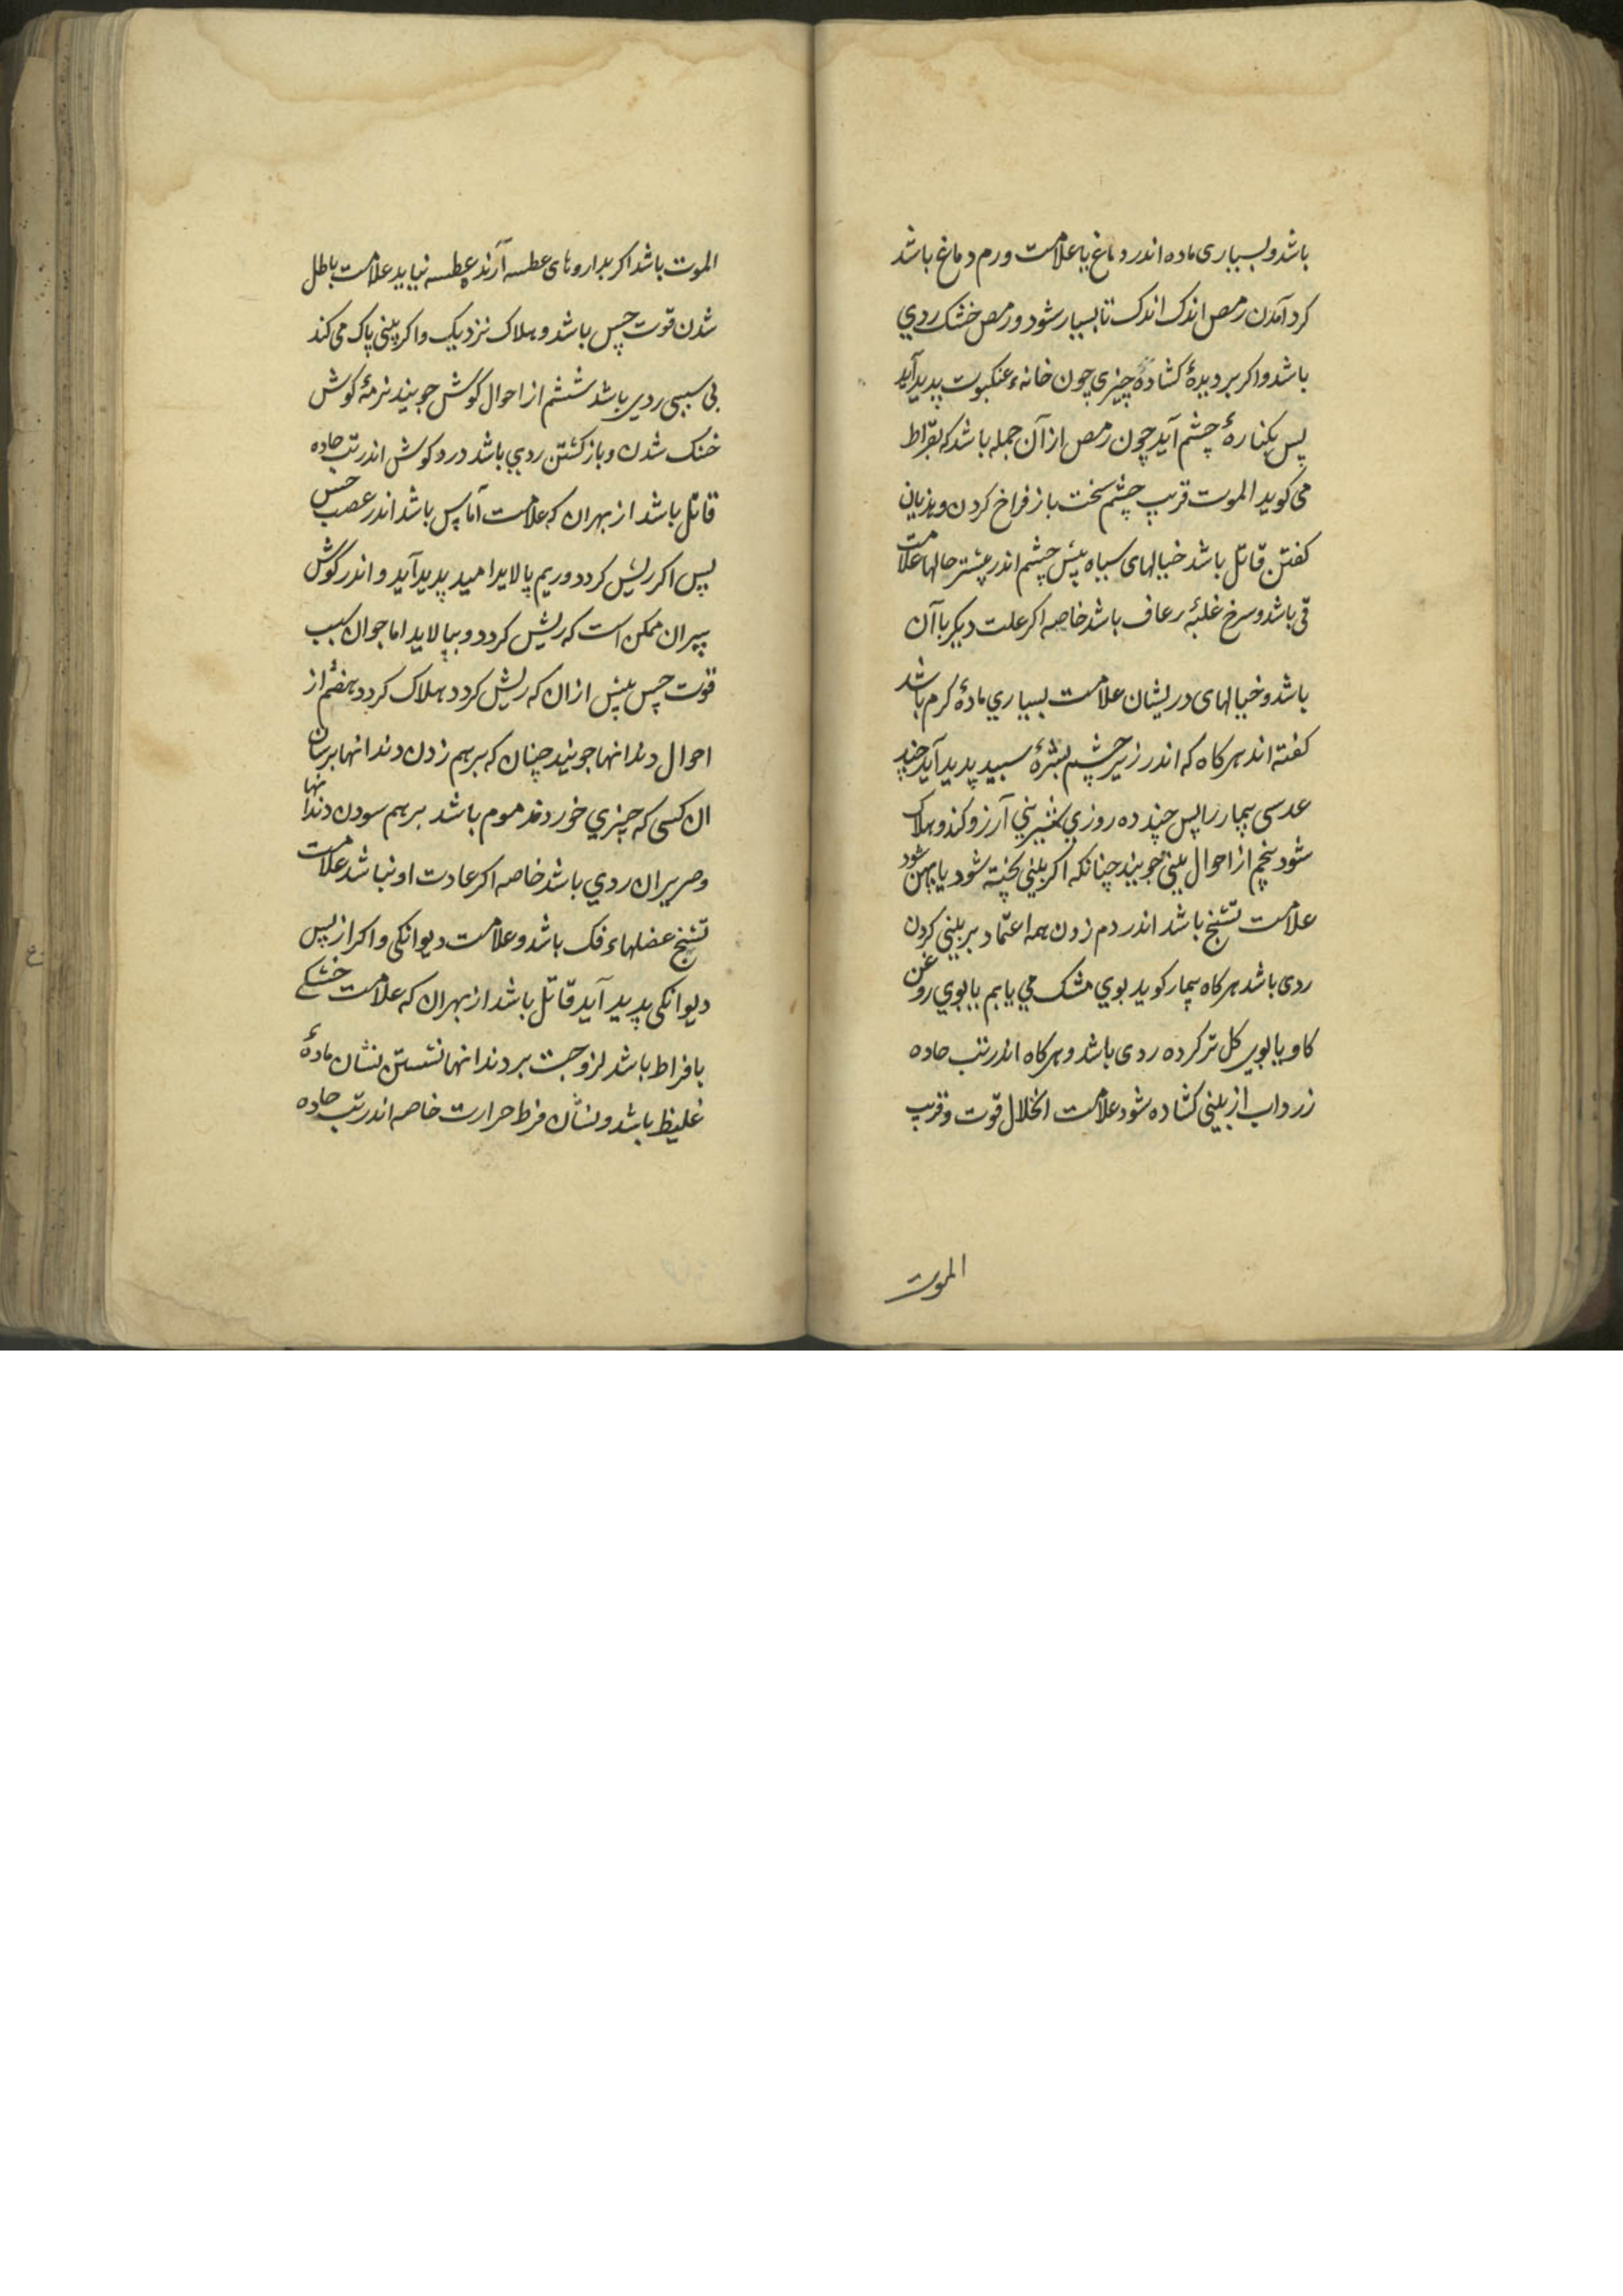 باشد و بسیاری ماده اندر دماغ یا علامت ورم دماغ باشد
کرد آمدن رمص اندک اندک تا بسیار شود و رمص خشک ردي
باشد و اکر بر دیدهٔ کشاده چیزي چون خانهٔ عنکبوت پدید آید
پس بکنارهٔ چشم آید چون رمص از آن جمله باشد که بقراط
می کوید الموت قریب چشم سخت باز فراخ کردن و هذیان
کفتن قاتل باشد خیالهای سیاه پیش چشم اندر بیشتر حالها علامت
قی باشد و سرخ غلبهٔ رعاف باشد خاصه اکر علت دیکر با آن
باشد و خیالهای دریشان علامت بسیاري مادهٔ کرم باشد
کفته اند هرکاه که اندر زیر چشم بثرهٔ سپید پدید آید چند
عدسی بیمار را پس چند ده روزي شیریني آرزو کند و هلاک
شود پنجم از احوال بیني جویند چنانکه اکر بیني کجپته شود یا پهن شود
علامت تشنج باشد اندر دم زدن همه اعتماد بر بیني کردن
ردی باشد هرکاه بیمار کوید بوي مشک مي یابم یا بوي روغن
کاو یا بوي کل تر کرده ردی باشد و هرکاه اندر تب حاده
زرداب از بیني کشاده شود علامت انحلال قوت و قریب
الموت
الموت باشد اکر بداروهای عطسه آرند عطسه نیاید علامت باطل
شدن قوت حس باشد و هلاک نزدیک و اکر بینی پاک می کند
بی سببی ردی باشد ششم از احوال کوش جویند نرمهٔ کوش
خنک شدن و باز کشتن ردي باشد درد کوش اندر تب حاده
قاتل باشد از بهر ان که علامت آماس باشد اندر عصب حس
پس اکر ریش کردد و ریم پالاید امید پدید آید و اندر کوش
پیران ممکن است که ریش کردد و بپالاید اما جوان بسبب
قوت حس پیش از ان که ریش کردد هلاک کردد هفتم از
احوال دندانها جویند چنان که بر هم زدن دندانها بر سان
ان کسی که چیزي خورد مذموم باشد بر هم سودن دندانها
و صریر ان ردي باشد خاصه اکر عادت او نباشد علامت
تشنج عضلهاء فک باشد و علامت دیوانکی و اکر از پس
دیوانکی پدید آید قاتل باشد از بهر ان که علامت خشکے
بافراط باشد لزوجت بر دندانها نشستن نشان مادهٔ
غلیظ باشد و نشان فرط حرارت خاصه اندر تب حاده